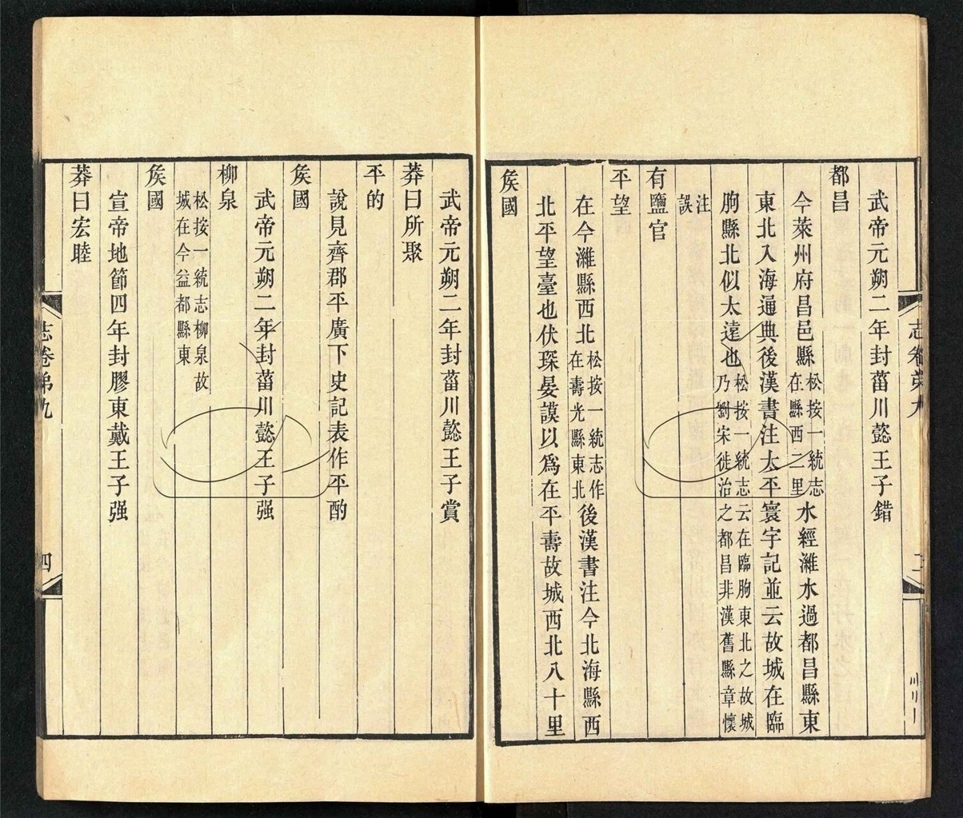 武帝元朔二年封菑川懿王子錯
都昌
今萊州府昌邑縣松按一統志在縣西二里水經濰水過都昌縣東
東北入海通典後漢書注太平寰宇記並云故城在臨
朐縣北似太遠也松按一統志云在臨朐東北之故城乃劉宋徙治之都昌非漢舊縣章懷
注誤
有鹽官
平望
在今濰縣西北松按一統志作在壽光縣東北後漢書注今北海縣西
北平望臺也伏琛晏謨以爲在平壽故城西北八十里
矦國
武帝元朔二年封菑川懿王子賞
莽曰所聚
平的
說見齊郡平廣下史記表作平酌
矦國
武帝元朔二年封菑川懿王子强
柳泉
松按一統志柳泉故城在今益都縣東
矦國
宣帝地節四年封膠東戴王子强
莽曰宏睦
志卷弟九
四